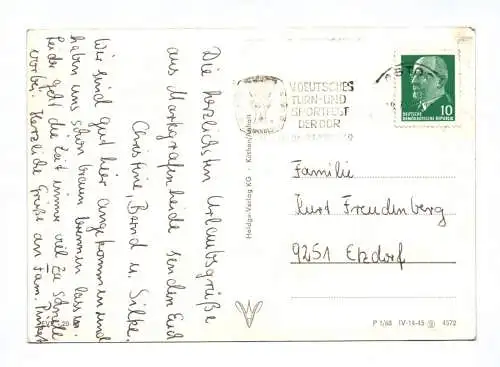 Die herzlichsten Urlaubsgrüße
aus Markgrafenheide senden Euch
Christine, Bernd u. Silke.
Wir sind gut hier angekommen und
haben uns schon braun brennen lassen.
Leider geht die Zeit immer viel zu schnell
vorbei. Herzliche Grüße an Fam.
V. DEUTSCHES
TURN-UND
SPORTFEST
DER DDR
10
DEUTSCHE
DEMOKRATISCHE REPUBLIK
Familie
Kurt Freudenberg
9251 Etzdorf
Heldge-Verlag KG · Köthen/Anhalt
P 1/68 IV-14-45 4572